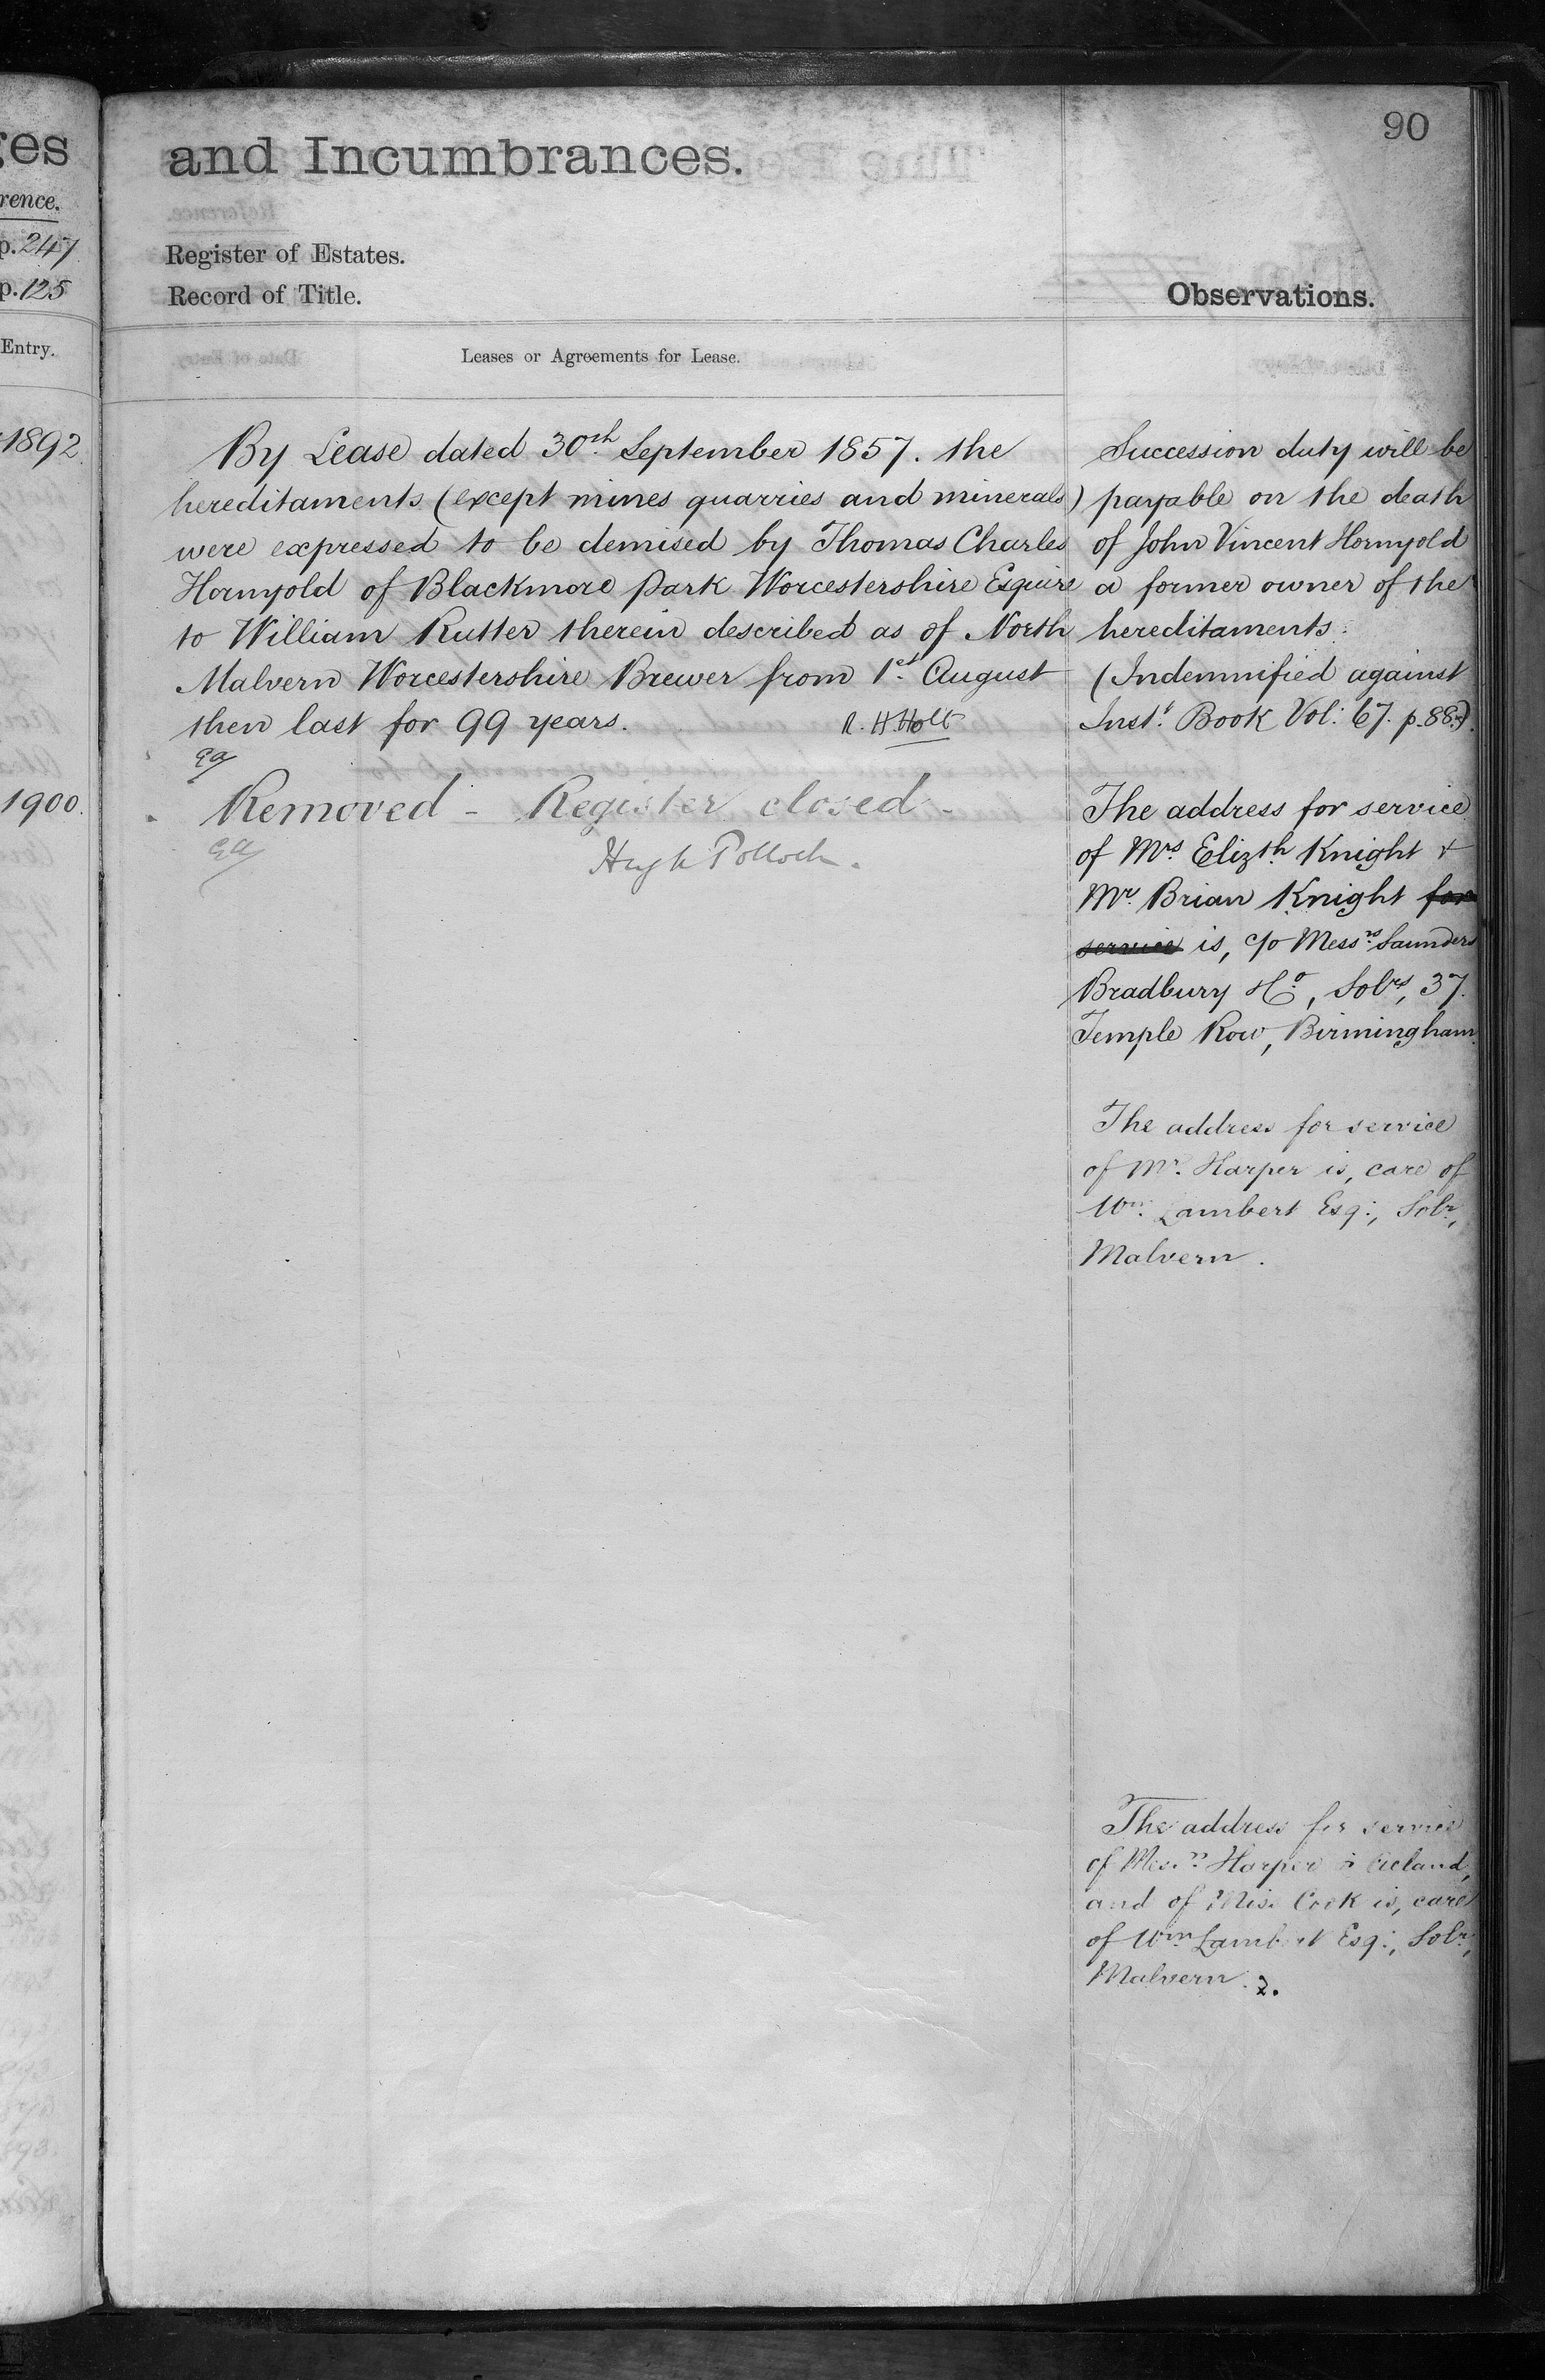 ges
rence.
p. 247
p. 125
Entry.
1892
1900.
90
and Incumbrances.
Register of Estates.
Record of Title.
Leases or Agreements for Lease.
By Lease dated 30th September 1857. the
hereditaments (except mines quarries and minerals)
were expressed to be demised by Thomas Charles
Hornyold of Blackmore Park Worcestershire Esquire
to William Rutter therein described as of North
Malvern Worcestershire Brewer from 1st August
then last for 99 years.
R. H. Holt
Removed - Register closed -
Hugh Pollock.
Observations.
Succession duty will be
payable on the death
of John Vincent Hornyold
a former owner of the
hereditaments.
(Indemnified against
Inst. Book Vol: 67. p. 88.)
The address for service
of Mrs. Elizth. Knight &
Mr. Brian Knight for
service is, c/o Messrs. Saunders
Bradbury & Co, Solrs, 37.
Temple Row, Birmingham.
The address for service
of Mr. Harper is, care of
Wm. Lambert Esq:, Solr,
Malvern.
The address for service
of Messrs. Harper & Acland,
and of Miss Cook is, care
of Wm. Lambert Esq:, Solr,
Malvern.